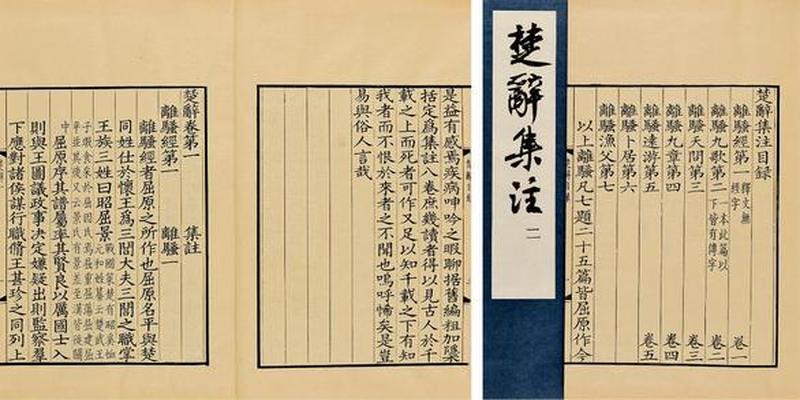 楚辭卷第一
離騷經第一 離騷一 集註
離騷經者屈原之所作也屈原名平與楚
同姓仕於懷王爲三閭大夫三閭之職掌
王族三姓曰昭屈景
屈原序其譜屬率其賢良以厲國士入
則與王圖議政事决定嫌疑出則監察羣
下應對諸侯謀行職脩王甚珍之同列上
是益有感焉疾病呻吟之暇聊據舊編粗加隱
括定爲集註八卷庶幾讀者得以見古人於千
載之上而死者可作又足以知千載之下有知
我者而不恨於來者之不聞也嗚呼悕矣是豈
易與俗人言哉
楚辭集注
二
楚辭集注目錄
離騷經第一 釋文無經字 卷一
離騷九歌第二 一本此篇以下皆有傳字 卷二
離騷天問第三 卷三
離騷九章第四 卷四
離騷遠游第五 卷五
離騷卜居第六
離騷漁父第七
以上離騷凡七題二十五篇皆屈原作今